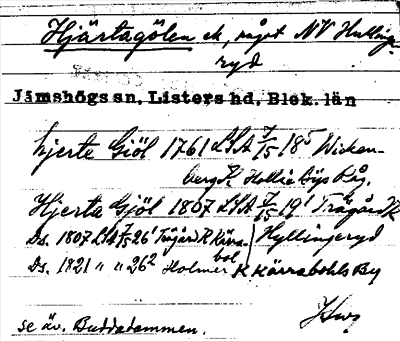 Hjärtagölen ek, något NV Hulling-
ryd
Jämshögs sn, Listers hd, Blek. län
hjerte Giöl 1761 LSA 7/15 18⁵ Wicken-
berg K. Hollie Bys Råg.
Hjerta Gjöl 1807 LSA 7/15 19¹ Trägård K
Ds. 1807 LSA 7/15 26¹ Trägård K Kärra-
bol Hyllingeryd
Ds. 1821 " " 26² Holmer K Kärrabohls By
se äv. Buddadammen.